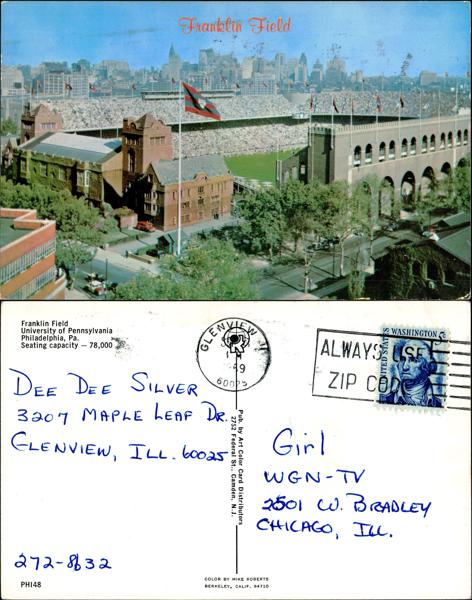 Franklin Field
Franklin Field
University of Pennsylvania
Philadelphia, Pa.
Seating capacity — 78,000
DEE DEE SILVER
3207 MAPLE LEAF DR.
GLENVIEW, ILL. 60025
272-8632
PH148
Pub. by Art Color Card Distributors
2752 Federal St., Camden, N.J.
COLOR BY MIKE ROBERTS
BERKELEY, CALIF. 94710
GLENVIEW, IL
60025
ALWAYS USE
ZIP CODE
WASHINGTON 5c
UNITED STATES
Girl
WGN-TV
2501 W. BRADLEY
CHICAGO, ILL.